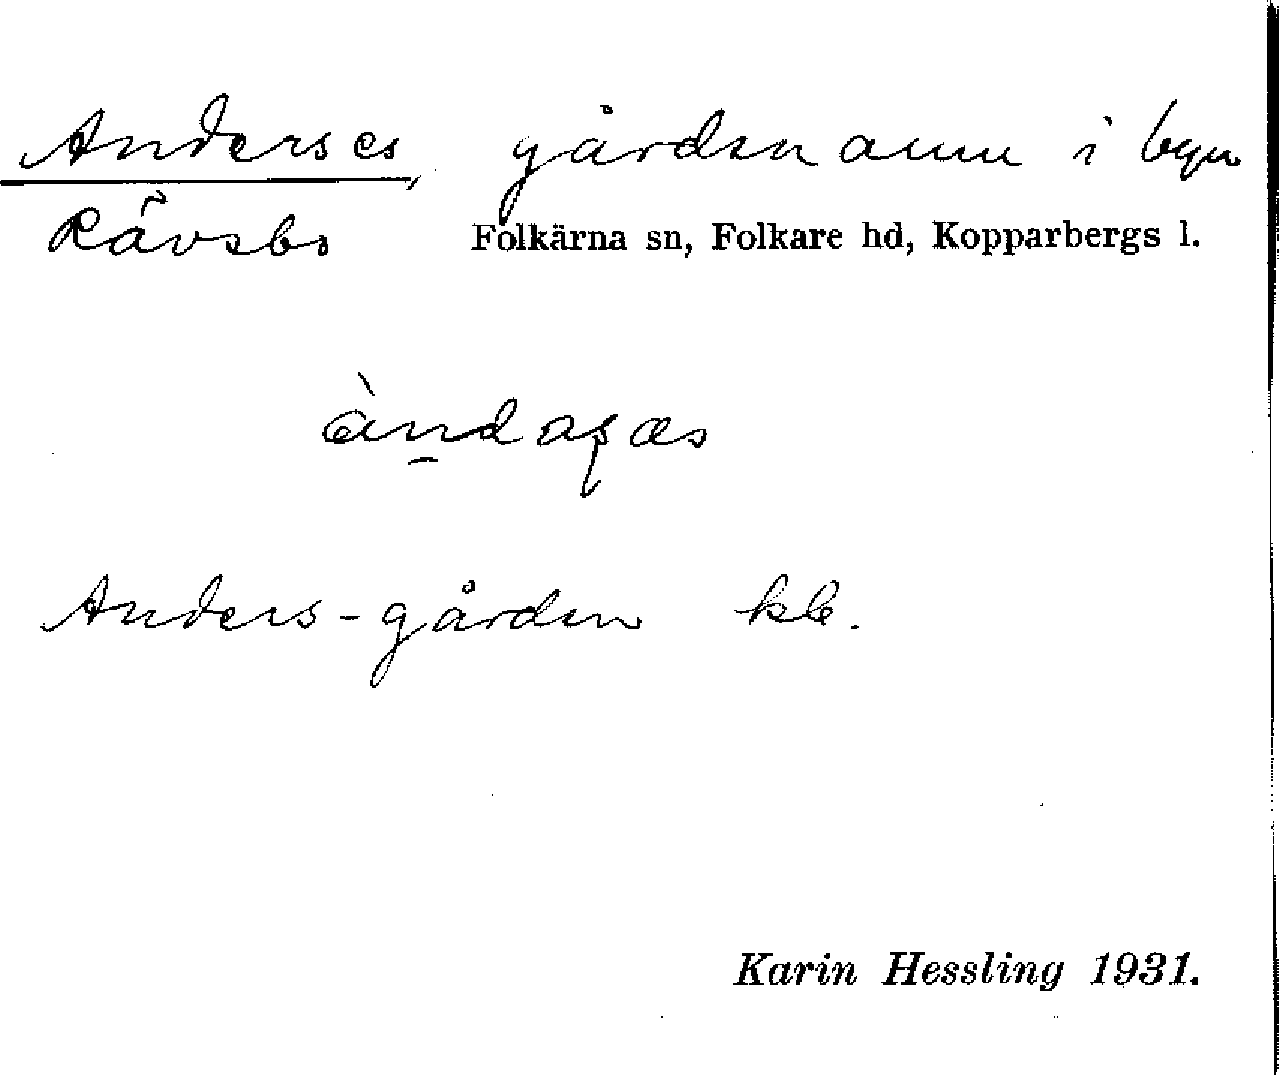 Anderses, gårdsnamn i byn
Rävsbo Folkärna sn, Folkare hd, Kopparbergs l.
Anders-gården
Karin Hessling 1931.